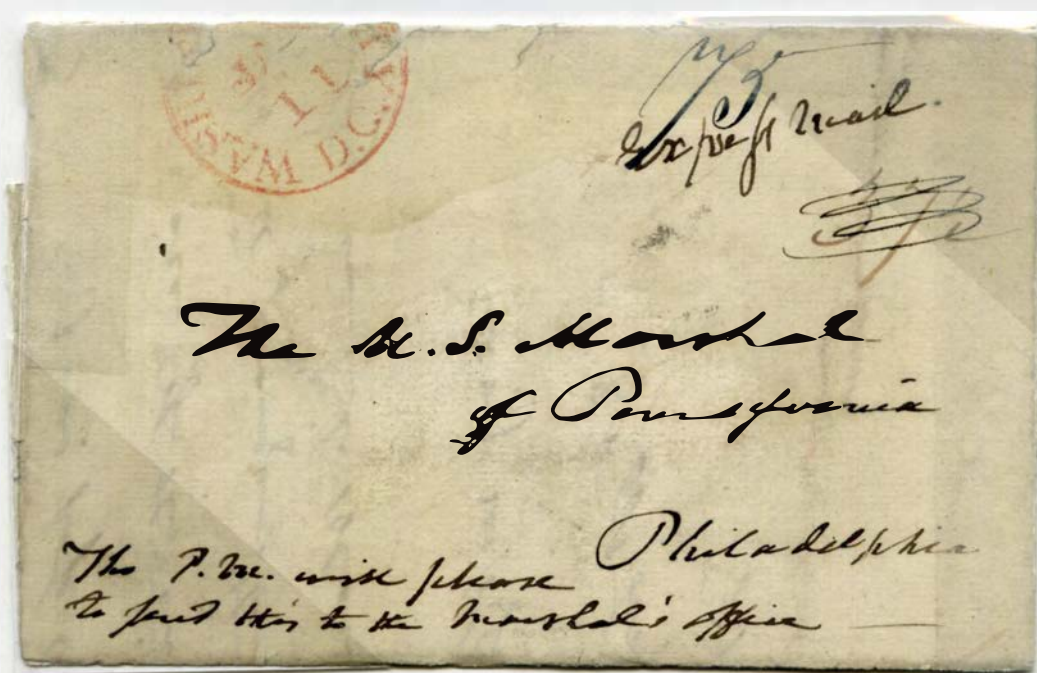 WASH D.C.
11
75
Express Mail.
The U.S. Marshal
of Pennsylvania
Philadelphia
The P.M. will please
to send this to the Marshal's office